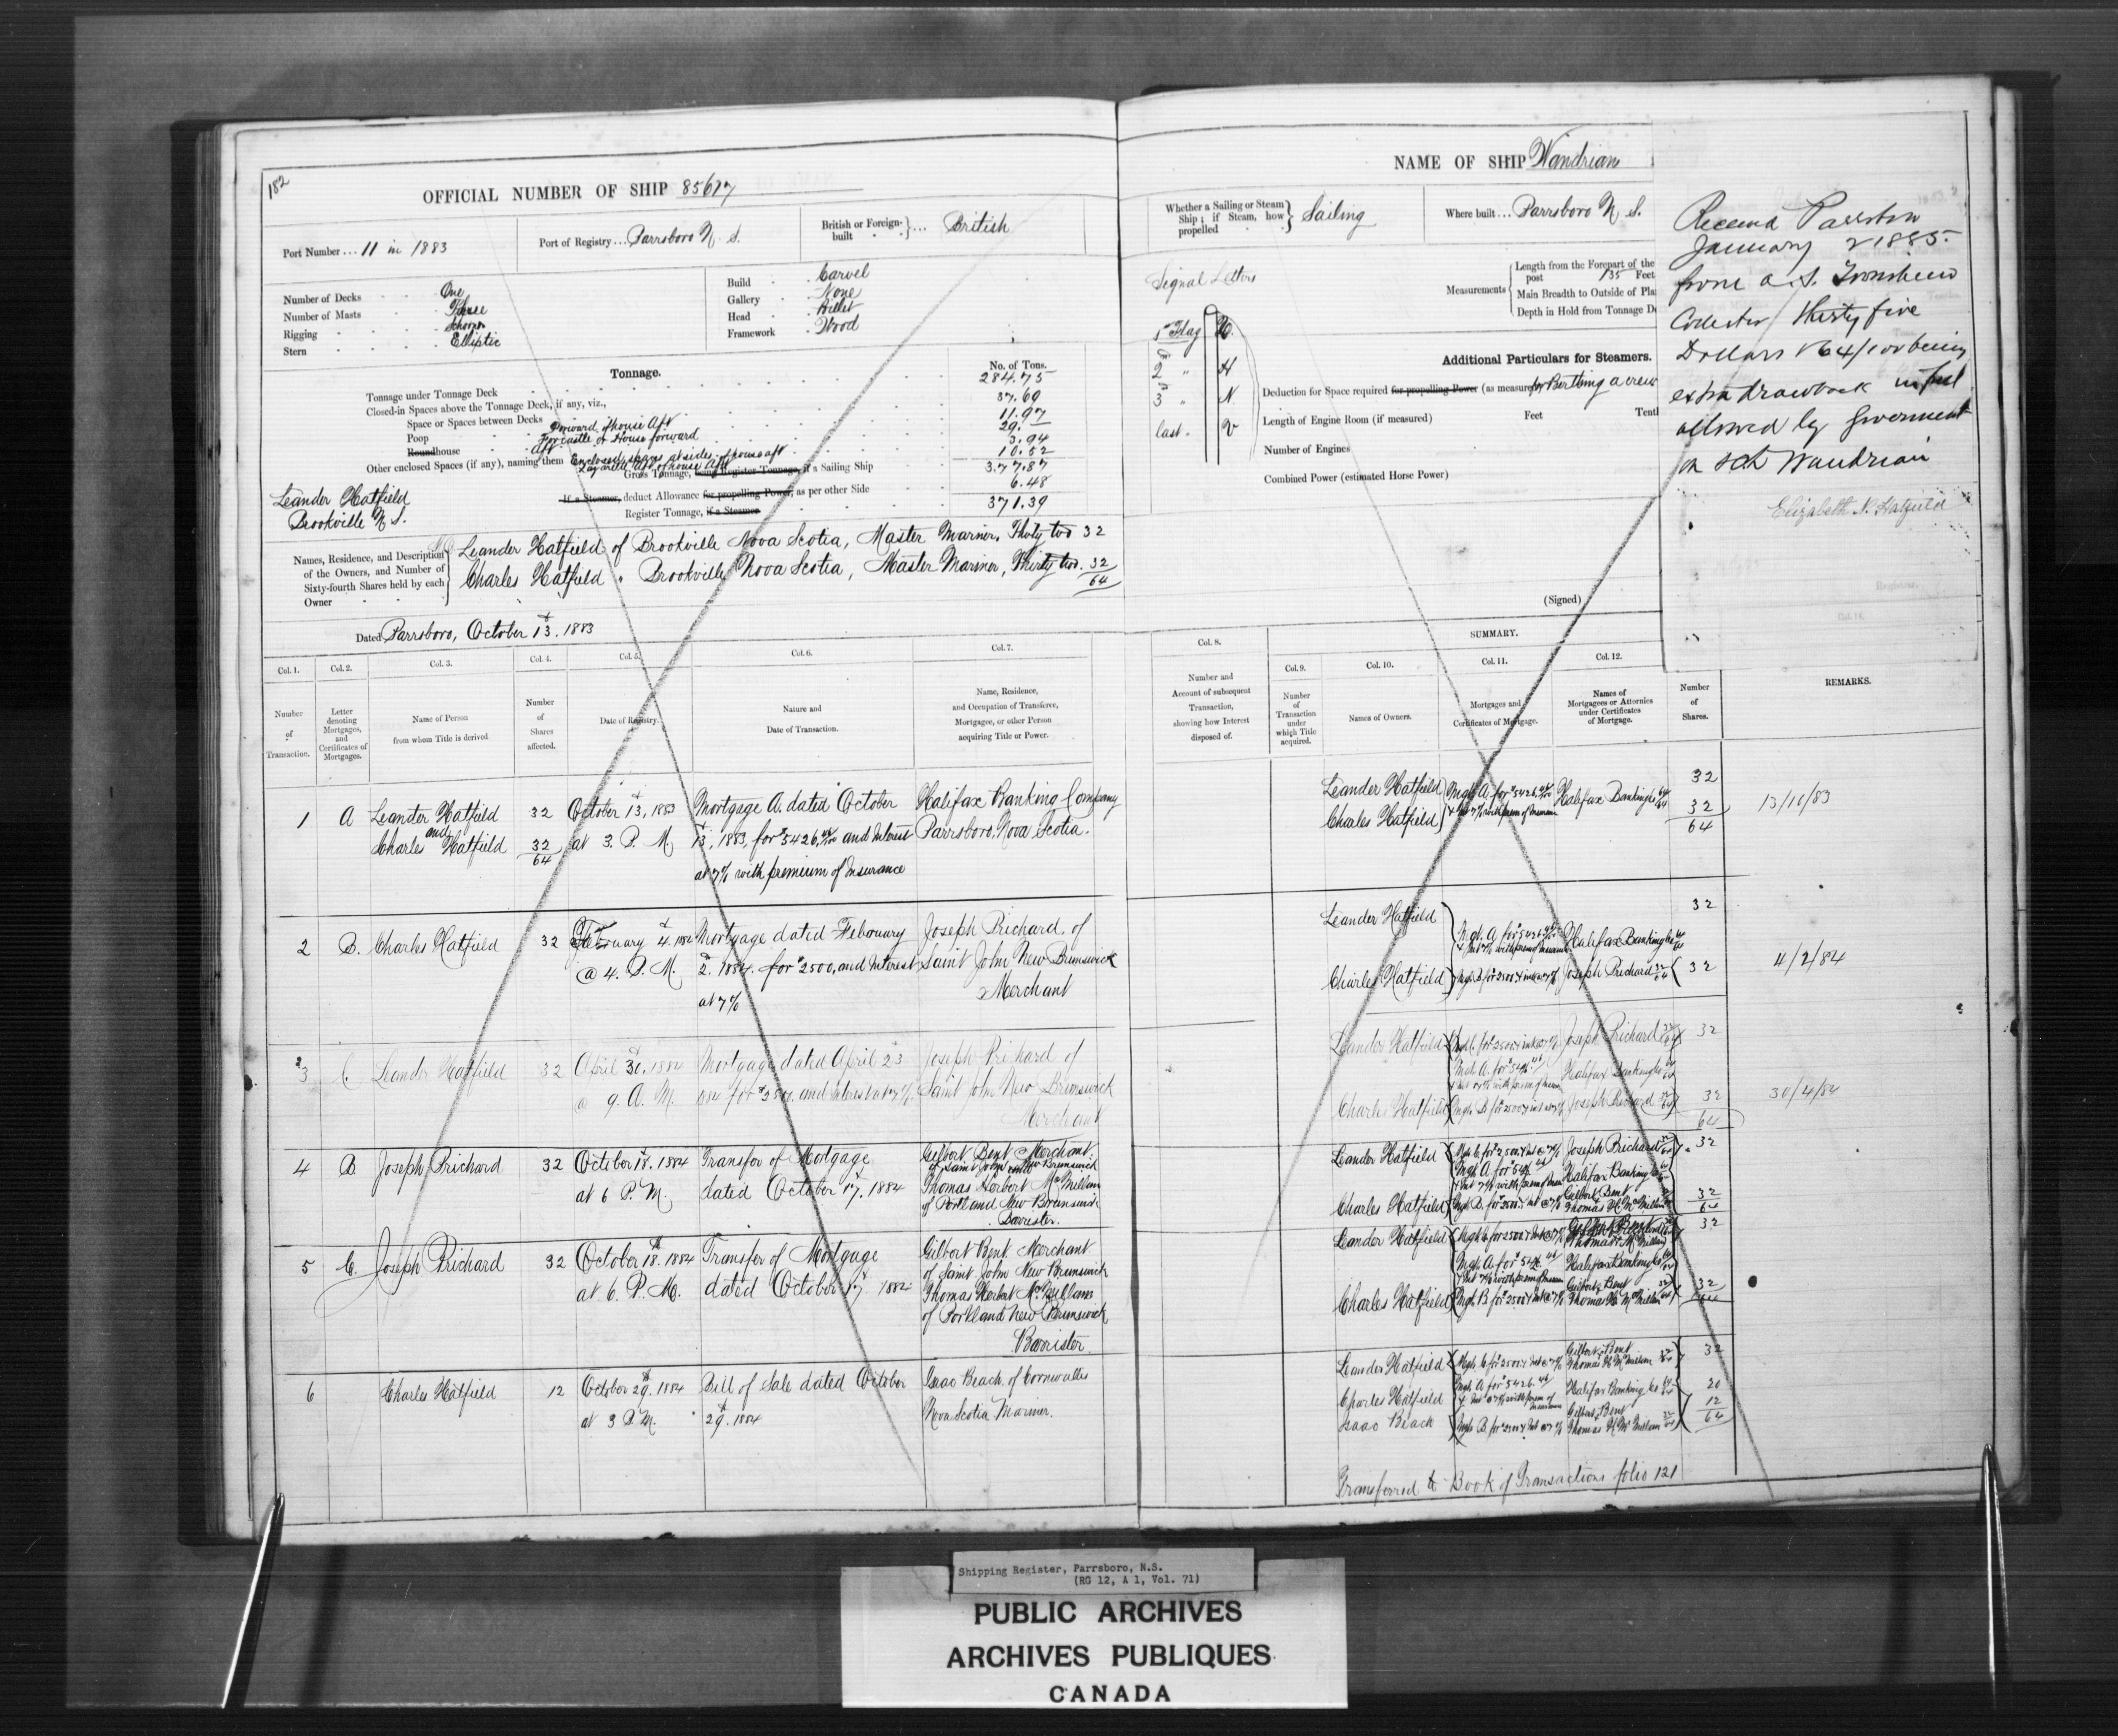 182
OFFICIAL NUMBER OF SHIP 85677
Port Number ... 11 in 1883
Port of Registry ... Parrsboro N. S.
British or Foreign-built ... British
Number of Decks One
Number of Masts Three
Rigging Schooner
Stern Elliptic
Build Carvel
Gallery None
Head Billet
Framework Wood
Tonnage.
No. of Tons.
Tonnage under Tonnage Deck 284.75
Closed-in Spaces above the Tonnage Deck, if any, viz.,
Space or Spaces between Decks 37.69
Poop Forward of house Aft 11.97
Forcastle or House forward 29.—
Roundhouse Aft 3.94
Other enclosed Spaces (if any), naming them Enclosed spaces at sides of house aft 10.52
Lazarette aft of house Aft
Gross Tonnage, being Register Tonnage, if a Sailing Ship 377.87
If a Steamer, deduct Allowance for propelling Power, as per other Side 6.48
Register Tonnage, if a Steamer 371.39
Leander Hatfield
Brookville N S.
Names, Residence, and Description of the Owners, and Number of Sixty-fourth Shares held by each Owner
Leander Hatfield of Brookville Nova Scotia, Master Mariner, Thirty two 32
Charles Hatfield " Brookville Nova Scotia, Master Mariner, Thirty two. 32
64
Dated Parrsboro, October 13th. 1883
Col. 1. Col. 2. Col. 3. Col. 4. Col. 5. Col. 6. Col. 7.
Number of Transaction.
Letter denoting Mortgages, and Certificates of Mortgages.
Name of Person from whom Title is derived
Number of Shares affected.
Date of Registry.
Nature and Date of Transaction.
Name, Residence, and Occupation of Transferee, Mortgagee, or other Person acquiring Title or Power.
1 A Leander Hatfield 32 October 13th, 1883 Mortgage A. dated October Halifax Banking Company
and
Charles Hatfield 32 at 3. P. M. 13th, 1883, for $5426,44/100 and Interest Parrsboro, Nova Scotia.
64
at 7% with premium of Insurance
2 B. Charles Hatfield 32 February 4th. 1884 Mortgage dated February Joseph Prichard, of
@ 4. P. M. 2d. 1884. for $2500, and Interest Saint John New Brunswick
at 7% Merchant
3 C. Leander Hatfield 32 April 30th. 1884 Mortgage dated April 23 Joseph Prichard of
@ 9. A. M. 1884 for $2500, and Interest at 7%. Saint John New Brunswick
Merchant
4 B Joseph Prichard 32 October 18. 1884 Transfer of Mortgage Gilbert Bent Merchant
of Saint John New Brunswick and
at 6 P. M. dated October 17th. 1884 Thomas Herbert McMillan
of Portland New Brunswick
Barrister.
5 C. Joseph Prichard 32 October 18th. 1884 Transfer of Mortgage Gilbert Bent. Merchant
of Saint John New Brunswick
at 6. P. M. dated October 17. 1884 Thomas Herbert McMillan
of Portland New Brunswick
Barrister
6 Charles Hatfield 12 October 29th. 1884 Bill of Sale dated October Isaac Beach. of Cornwallis
at 3 P.M. 29th. 1884 Nova Scotia Mariner.
NAME OF SHIP Wandrian
Whether a Sailing or Steam Ship; if Steam, how propelled Sailing
Where built ... Parrsboro N. S.
Signal Letters
1st Flag
2d " H
3d " N
last. " V
Measurements
Length from the Forepart of the
post 135 Feet
Main Breadth to Outside of Pla
Depth in Hold from Tonnage D
Additional Particulars for Steamers.
Deduction for Space required for propelling Power (as measured for Berthing a crew
Length of Engine Room (if measured) Feet Tent
Number of Engines
Combined Power (estimated Horse Power)
(Signed)
Received Parrsboro
January 2 1885.
from A. S. Townshend
Collector Thirty five
Dollars & 64/100 being
extra drawback in full
allowed by Government
on sch Wandrian
Elizabeth N. Hatfield
Registrar.
SUMMARY.
Col. 8. Col. 9. Col. 10. Col. 11. Col. 12.
Number and Account of subsequent Transaction, showing how Interest disposed of.
Number of Transaction under which Title acquired.
Names of Owners.
Mortgages and Certificates of Mortgage.
Names of Mortgagees or Attornies under Certificates of Mortgage.
Number of Shares.
REMARKS.
Leander Hatfield Mgh A. for $5426.44/100 Halifax Banking Co 64/64 32
Charles Hatfield & Int 7% with prem of Insurance 32 13/10/83
64
Leander Hatfield 32
Mgh. A for $5426.44/100 Halifax Banking Co 64/64
& Int 7% with prem of Insurance
Charles Hatfield Mgh. B for $2500 & int @ 7% Joseph Prichard 32/64 32 4/2/84
Leander Hatfield Mgh C. for $2500 & int @ 7% Joseph Prichard 32/64 32
Mgh. A. for $5426.44 Halifax Banking Co 64/64
& Int 7% with prem of Insur
Charles Hatfield Mgh. B for 2500 & int @ 7% Joseph Prichard 32/64 32 30/4/84
64
Leander Hatfield Mgh C. for $2500 & Int @ 7% Joseph Prichard 32/64 32
Mgh A. for $5426.44 Halifax Banking Co
& Int 7% with prem of Insur
Gilbert Bent
Charles Hatfield Mgh. B. for $2500 & Int @ 7% Thomas H. McMillan 32
64
Gilbert Bent
Leander Hatfield Mgh C for 2500 & Int @ 7% Thomas H. McMillan 32
Mgh. A for $5426.44 Halifax Banking Co
& Int 7% with prem of Insur
Gilbert Bent
Charles Hatfield Mgh. B for $2500 & int @ 7% Thomas H. McMillan 32
64
Gilbert Bent
Leander Hatfield Mgh. C for $2500 & Int @ 7% Thomas H McMillan 32/64 32
Mgh A for $5426.44
Charles Hatfield & Int @ 7% with prem of Insurance Halifax Banking Co 64/64 20
Gilbert Bent 12
Isaac Beach Mgh B. for $2500 & Int @ 7% Thomas H McMillan 32/64 64
Transferred to Book of Transactions folio 121
Shipping Register, Parrsboro, N.S.
(RG 12, A 1, Vol. 71)
PUBLIC ARCHIVES
ARCHIVES PUBLIQUES
CANADA